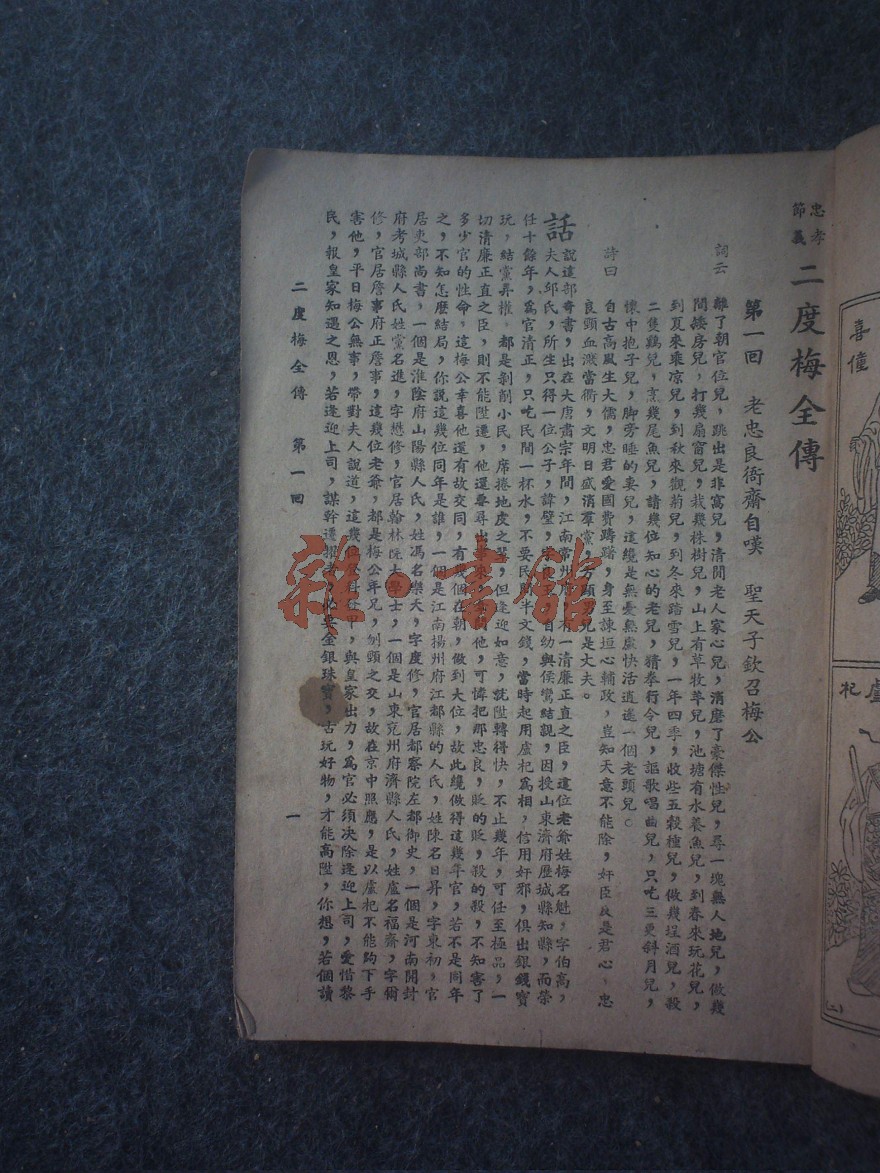 忠孝節義
二度梅全傳
第一回　老忠良衙齋自嘆　聖天子欽召梅公
詞云
離了朝官位兒，跳出是非窩兒，清閒老人家心兒，消磨了豪傑性兒，尋一塊無人地兒，做幾
間矮房兒，打幾扇窗兒，栽幾株樹兒，山上有草牧羊兒，池塘有水養魚兒，到春來玩花兒，
到夏來乘凉兒，到秋來觀菊兒，到冬來踏雪兒，一年四季，收些五穀種兒，做幾埕酒兒，殺
二隻鷄兒，烹幾尾魚兒，請幾位知心的老兒，猜拳行令兒，謳歌唱曲兒，只吃三更斜月兒，
懷中抱子兒，脚旁睡的妻兒，這纔是無憂無慮快活逍遙一個老頭兒。
詩曰
自古高風生大儒，忠君愛國費躊躇，身至諫垣心輔政，豈知天意不能除，奸臣反是君心，忠
良頸血濺當衢，文明日盛消羣黨，方顯兒是丈夫。
話說這部奇書，出在大唐肅宗年間，江南常州府，有一清廉正直之臣，這位老爺姓梅名魁，字伯高，
夫人邱氏，所生只得一位公子，諱璧，自幼與侯鸞結親，因授山東濟府歷城縣知縣，而榮
任十餘年，爲官清正，只吃民間一杯水，不要民間半文錢，當時起用盧杞爲相，信用奸邪，俱出銀錢寶
玩，結黨弄權，都是剝削小民，席捲地皮之輩，但逢迎如意，就陞轉得快，不止幾年，可任至極品，一
切清廉正直之臣，則不能陞遷，他還要尋出事來，害他，可憐把那忠良，貶的貶，殺的殺，不知害了
多少官的性命，這梅公幸喜他還有故交同，有幾個在朝，做到大位，故此纔做得這幾年官，若不是同年
之，不知怎麽結局，你說這幾位同年是誰，一個是江南揚州府江都縣的人氏，姓陳名日昇，字東初，官
居吏部尚書，一個是淮陰府山陽縣人氏，姓馮名樂天，字度修，官居都察院左都御史，一個是河南開封
府考城縣人氏姓黨名進，字懋修，官居翰林院大學士，一個是山東兗州府濟縣人氏，姓盧名福齋，字爾
修，官居詹事府正詹事，這幾位老爺，都是梅公年兄，刎頸之交，故在京中照應，是以盧杞不能夠下手
害他，平日梅公無事，帶對夫人說道，這幾，與皇家出力，爲官必須決除逢迎上司，愛惜黎
民，報皇家知遇之恩，若逢迎上司，謀幹遷擢者，必要金銀珠寶，古玩好物，才能高陞，你想，若個讀
二度梅全傳　第一回　一
喜僮
盧杞
(二)
雜·書館